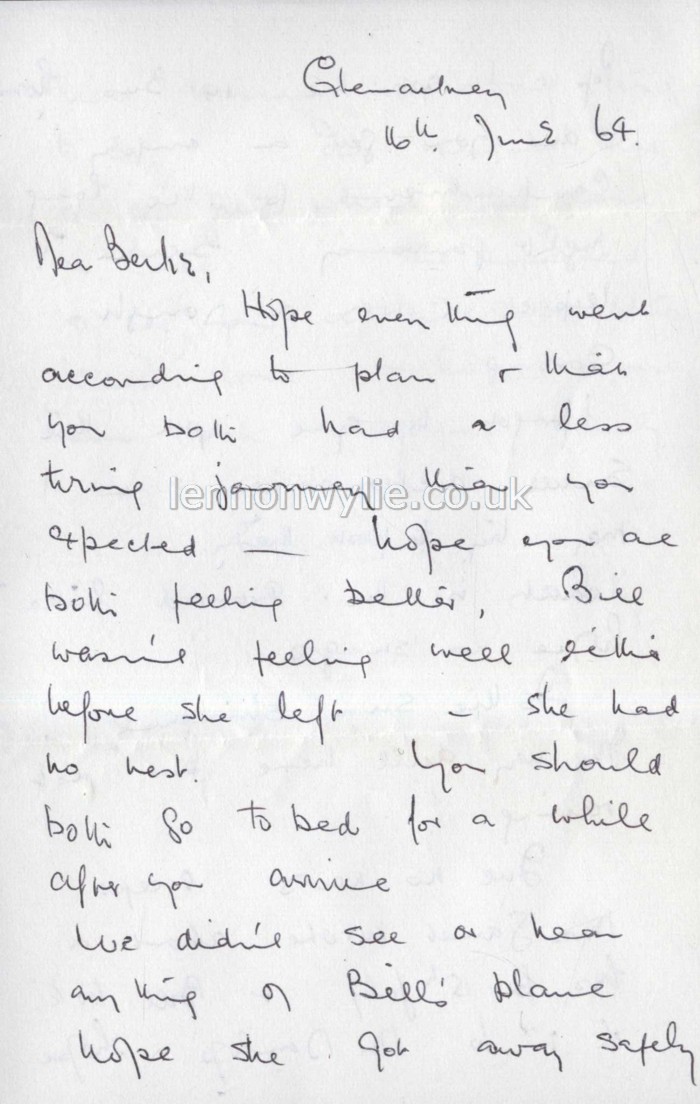 16th June 64.
Dear Bertie,
Hope everything went
according to plan & that
you both had a less
tiring journey than you
expected — hope you are
both feeling better, Bill
wasn't feeling well either
before she left – she had
no rest. You should
both go to bed for a while
after you arrive
We didn't see or hear
anything of Bill's plane
hope she got away safely
lennonwylie.co.uk